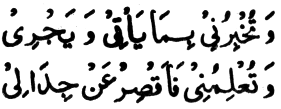 وَ تُخْبِرُنِيْ بِمَا يَأْتِيْ وَ يَجْرِيْ
وَ تُعْلِمُنِيْ فَأَقْصِرُ عَنْ جِدَالِيْ